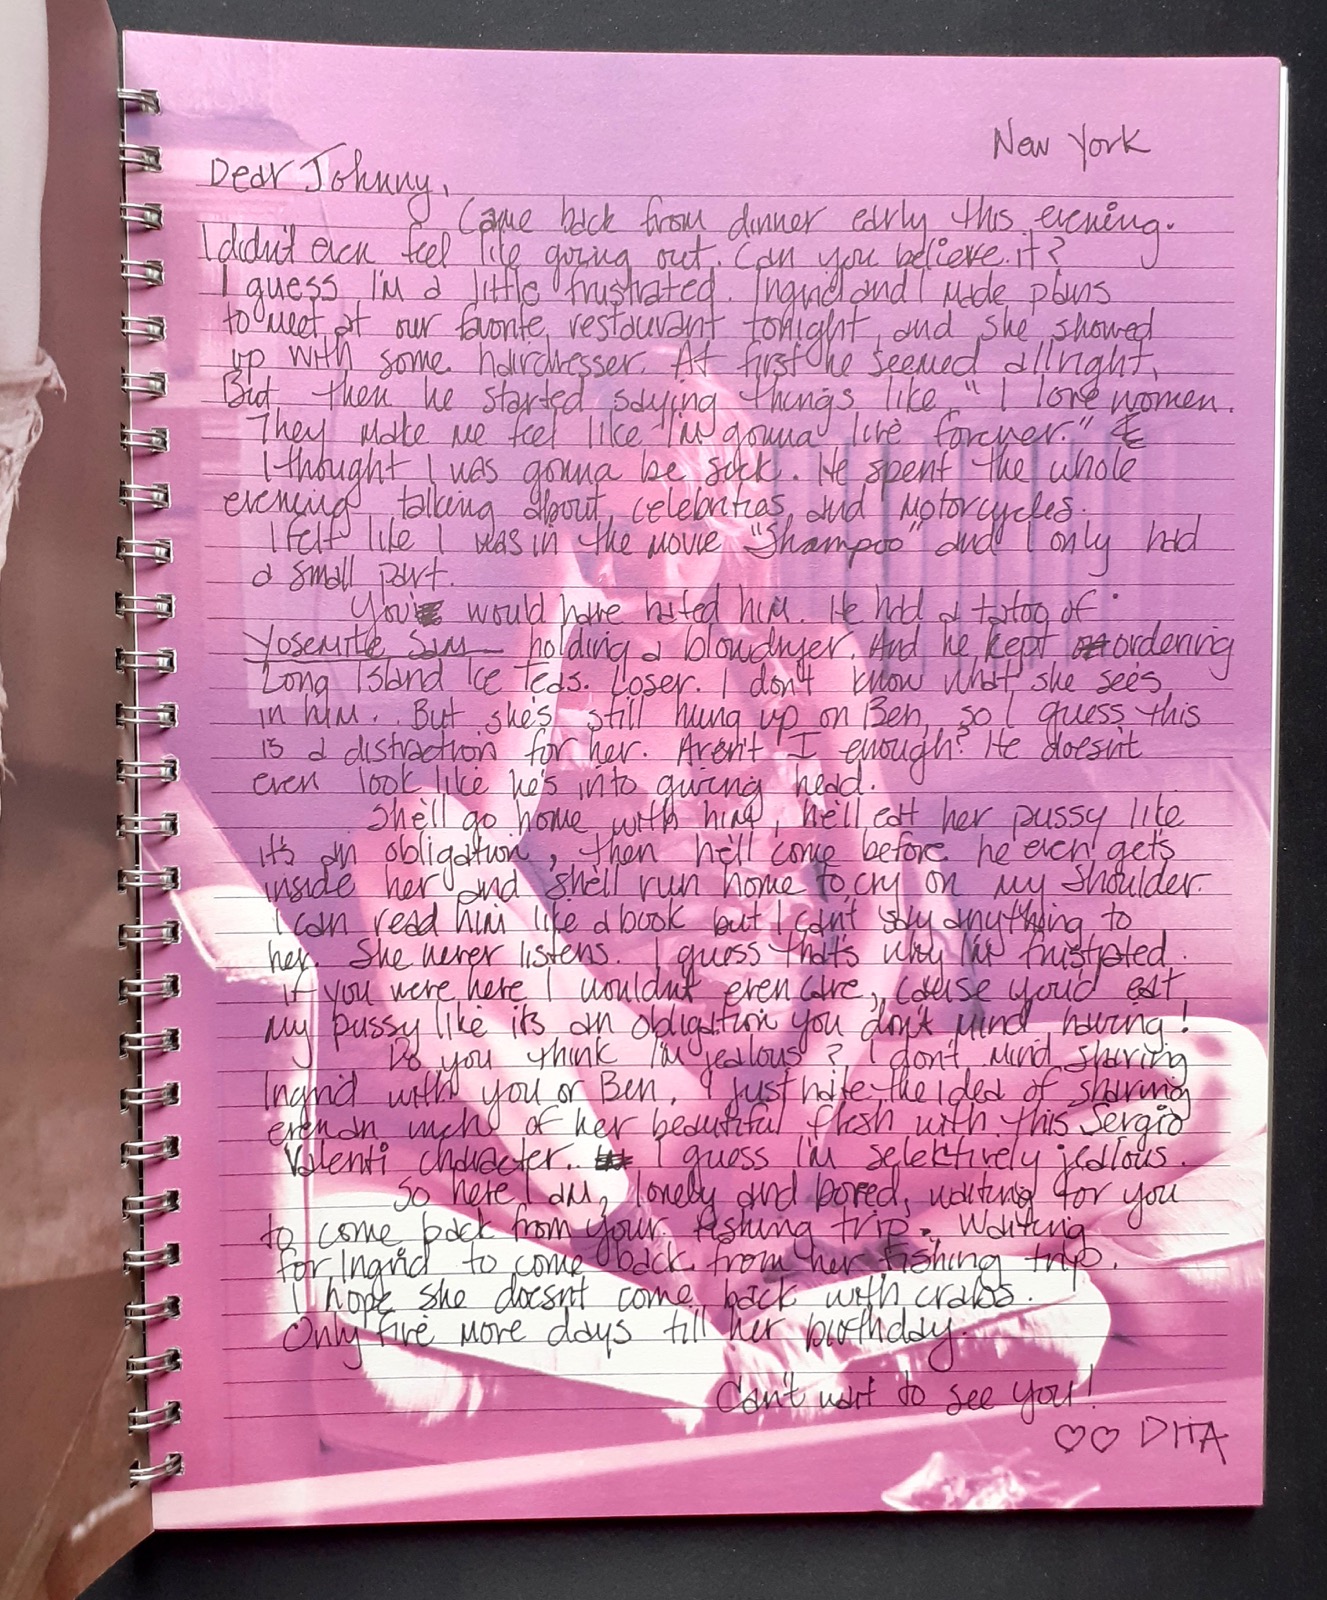 New York
Dear Johnny,
Came back from dinner early this evening.
I didn't even feel like going out. Can you believe it?
I guess I'm a little frustrated. Ingrid and I made plans
to meet at our favorite restaurant tonight and she showed
up with some hairdresser. At first he seemed allright,
But then he started saying things like "I love women.
They make me feel like I'm gonna live forever."
I thought I was gonna be sick. He spent the whole
evening talking about celebrities and motorcycles.
I felt like I was in the movie "Shampoo" and I only had
a small part.
You would have hated him. He had a tatoo of
Yosemite Sam holding a blowdryer. And he kept ordering
Long Island Ice Teas. Loser. I don't know what she sees
in him. But she's still hung up on Ben, so I guess this
is a distraction for her. Aren't I enough? He doesn't
even look like he's into giving head.
She'll go home with him, he'll eat her pussy like
it's an obligation, then he'll come before he even gets
inside her and she'll run home to cry on my shoulder.
I can read him like a book but I can't say anything to
her. She never listens. I guess that's why I'm frustrated.
If you were here I wouldn't even care, cause you'd eat
my pussy like it's an obligation you don't mind having!
Do you think I'm jealous? I don't mind sharing
Ingrid with you or Ben. I just hate the idea of sharing
even an inch of her beautiful flesh with this Sergio
Valenti character. I guess I'm selektively jealous.
So here I am, lonely and bored, waiting for you
to come back from your fishing trip. Waiting
for Ingrid to come back from her fishing trip.
I hope she doesn't come back with crabs.
Only five more days till her birthday.
Can't wait to see you!
♡♡ DITA